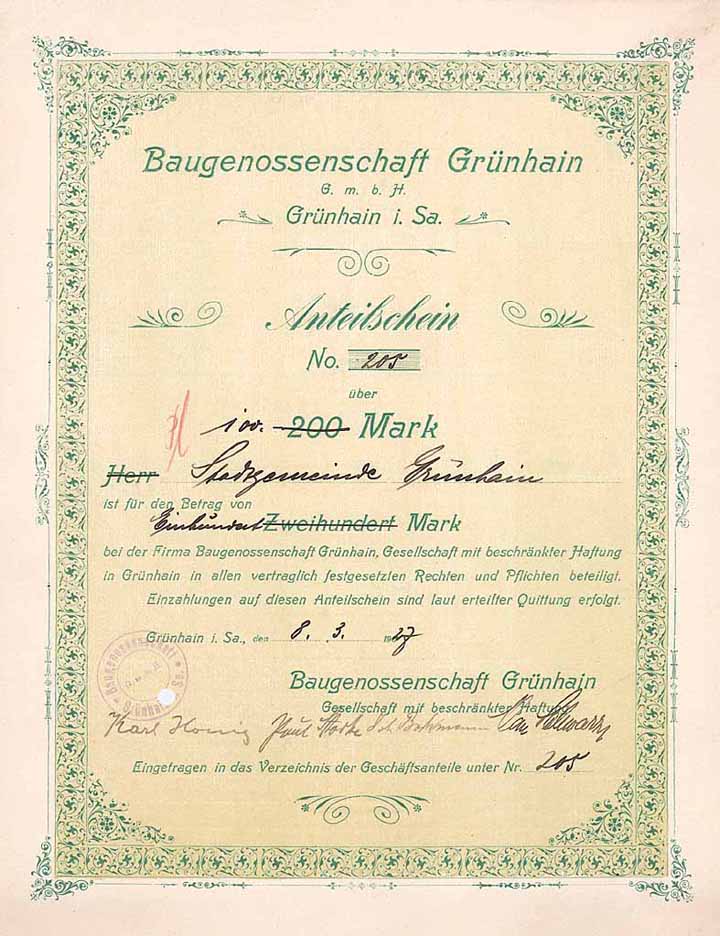 Baugenossenschaft Grünhain
G. m. b. H.
Grünhain i. Sa.
Anteilschein
No. 205
über
100.- 200 Mark
Herr Stadtgemeinde Grünhain
ist für den Betrag von
Einhundert Zweihundert Mark
bei der Firma Baugenossenschaft Grünhain, Gesellschaft mit beschränkter Haftung
in Grünhain in allen vertraglich festgesetzten Rechten und Pflichten beteiligt.
Einzahlungen auf diesen Anteilschein sind laut erteilter Quittung erfolgt.
Grünhain i. Sa., den 8. 3. 1927
Baugenossenschaft Grünhain
Gesellschaft mit beschränkter Haftung
Baugenossenschaft Grünhain i. Sa.
Karl Honig Paul
Eingetragen in das Verzeichnis der Geschäftsanteile unter Nr. 205